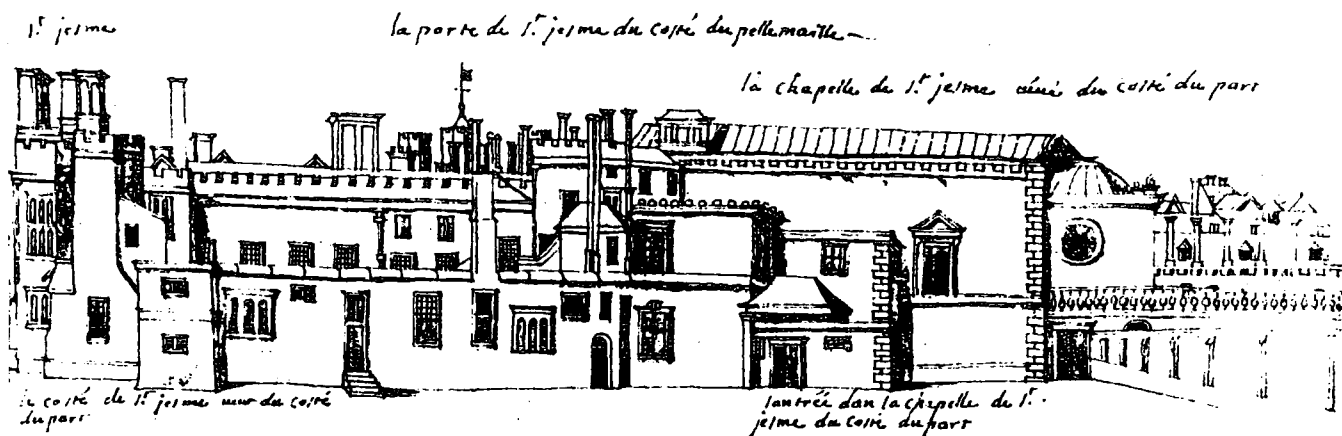 St. jesme
la porte de St. jesme du costé du pellemaille
la chapelle de St. jesme du costé du parc
le costé de St. jesme veue du costé
du parc
lantrée dan la chapelle de St.
jesme du costé du parc